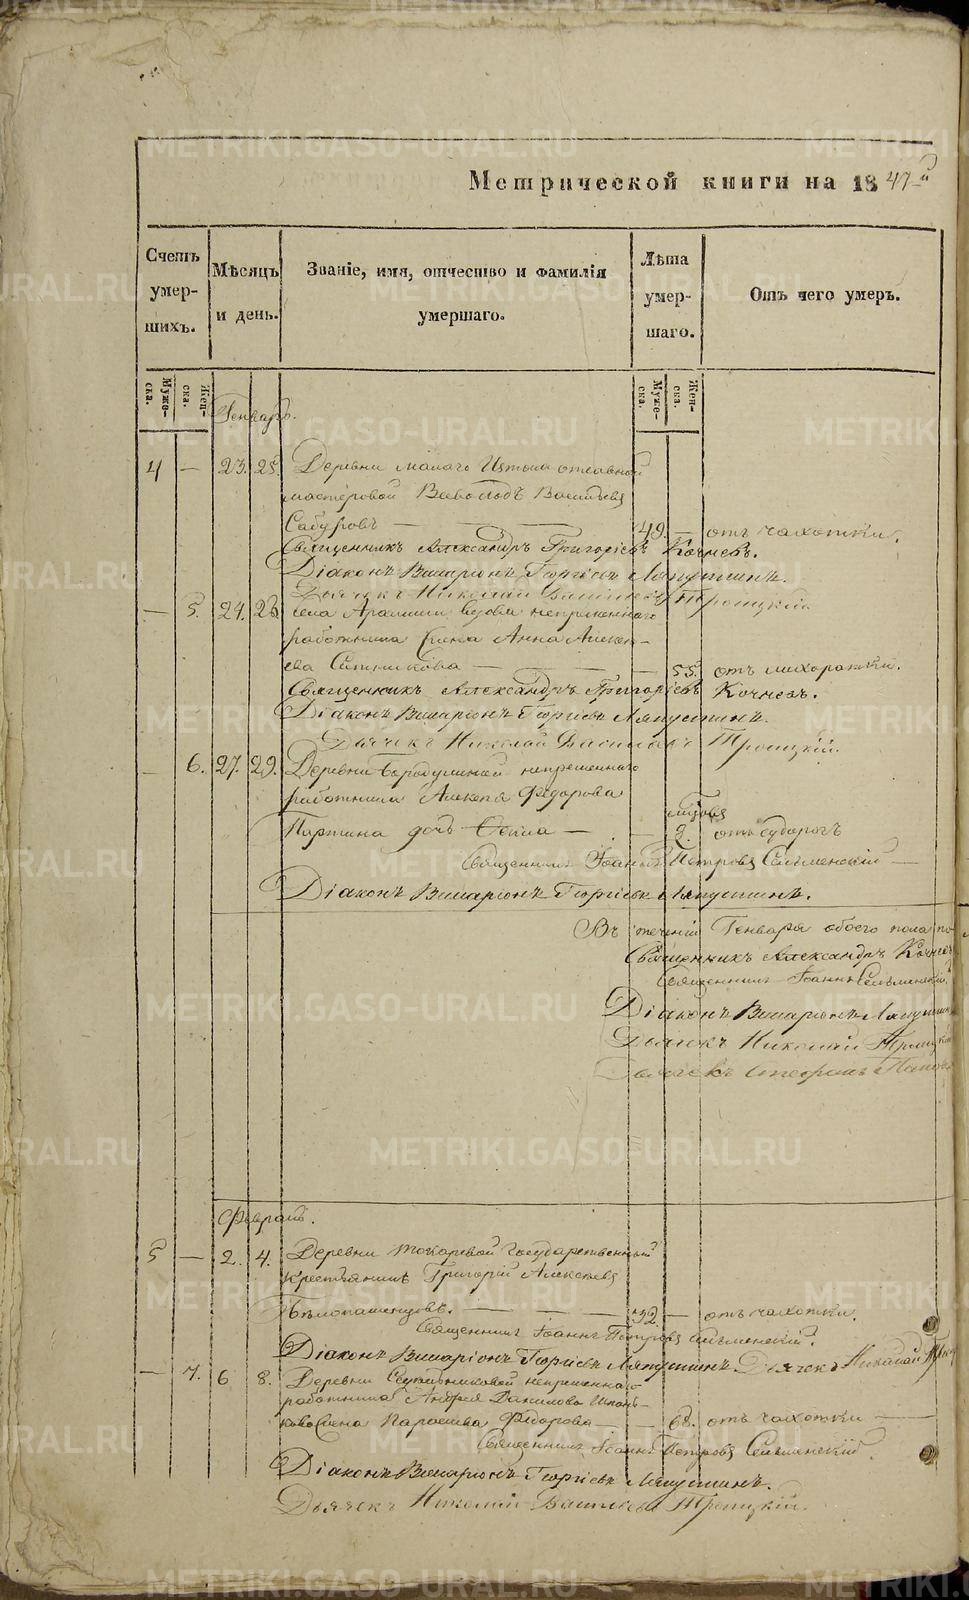 Метрической книги на 1847й
Счетъ умер-шихъ.
Мѣсяцъ и день.
Званіе, имя, отчество и фамилія умершаго.
Лѣта умер-шаго.
Отъ чего умеръ.
Муже-ска.
Жен-ска.
Муже-ска.
Жен-ска.
Генварь.
4 — 23. 25. Деревни малаго Истока отставной
мастеровой Всеволодъ Васильевъ
Сабуровъ — 49. — отъ чахотки.
Священникъ Александръ Григоріевъ Кочневъ.
Діаконъ Виссаріонъ Георгіевъ Ляпустинъ.
Дьячекъ Николай Васильевъ Троицкій
— 5. 24. 26. села Арамили вдова непремѣннаго
работника Анна Алексѣ-
ева Ситникова — — 55. отъ лихорадки.
Священникъ Александръ Григоріевъ Кочневъ.
Діаконъ Виссаріонъ Георгіевъ Ляпустинъ.
Дьячекъ Николай Васильевъ Троицкій.
— 6. 27. 29. Деревни Бородулиной непремѣннаго
работника Алексѣя Федорова
Паршина дочь — — 2. отъ судорогъ
Священникъ Іоаннъ Петровъ Сельменскій —
Діаконъ Виссаріонъ Георгіевъ Ляпустинъ.
Въ теченіи Генваря обоего пола по
Священникъ Александръ Кочневъ
Священникъ Іоаннъ Сельменскій.
Діаконъ Виссаріонъ Ляпустин
Дьячекъ Николай Троицкій
Дьячекъ
Февраль.
5 — 2. 4. Деревни Токаревой государственный
крестьянинъ Григорій Алексѣевъ
Бѣлопашенцовъ. — 32. — отъ чахотки.
Священникъ Іоаннъ Петровъ Сельменскій.
Діаконъ Виссаріонъ Георгіевъ Ляпустинъ Дьячекъ Николай
— 7. 6 8. Деревни непремѣннаго
работника Андрея Данилова
Парасева Федорова — — 68. отъ чахотки —
Священникъ Іоаннъ Петровъ Сельменскій.
Діаконъ Виссаріонъ Георгіевъ Ляпустинъ.
Дьячекъ Николай Васильевъ Троицкій.
METRIKI.GASO-URAL.RU